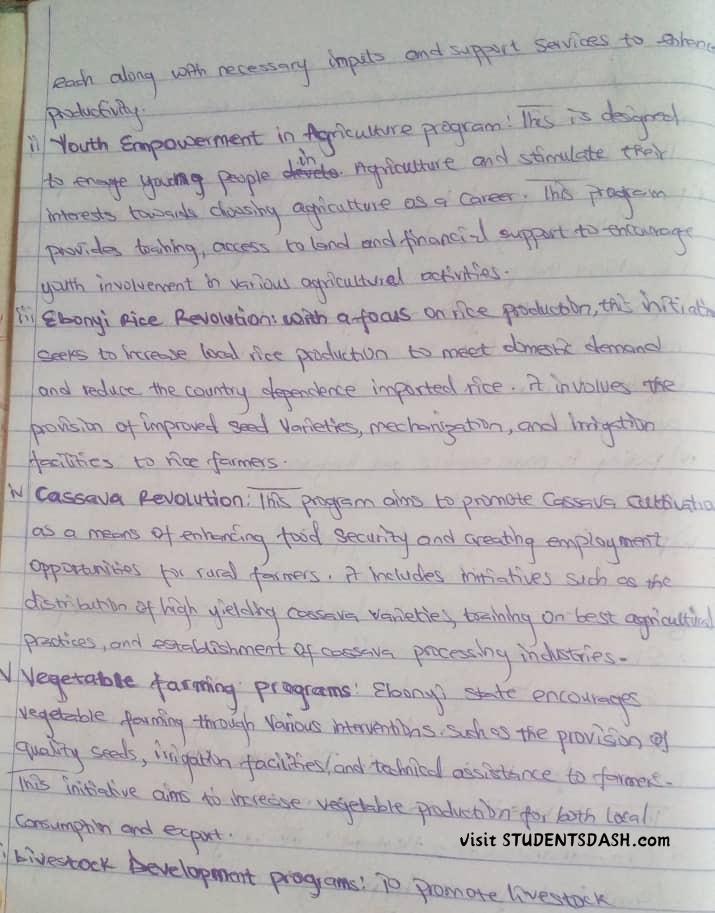 each along with necessary inputs and support services to enhanc
productivity.
ii) Youth Empowerment in Agriculture program: This is designed
to engage young people in Agriculture and stimulate their
interests towards choosing agriculture as a career. This program
provides training, access to land and financial support to encourage
youth involvement in various agricultural activities.
iii) Ebonyi Rice Revolution: with a focus on rice production, this initiativ
seeks to increase local rice production to meet domestic demand
and reduce the country dependence imported rice. it involves the
povision of improved seed varieties, mechanization, and irrigation
facilities to rice farmers.
iv Cassava Revolution: This program aims to promote Cassava Cultivatio
as a means of enhancing food security and creating employment
opportunities for rural farmers. it includes initiatives such as the
distribution of high yielding cassava varieties, training on best agricultural
practices, and establishment of cassava processing industries.
V Vegetable farming programs: Ebonyi state encourages
vegetable farming through various interventions. such as the provision of
quality seeds, irrigation facilities, and technical assistance to farmers.
This initiative aims to increase vegetable production for both local
Consumption and export.
Visit STUDENTSDASH.com
Livestock Development programs: To promote livestock